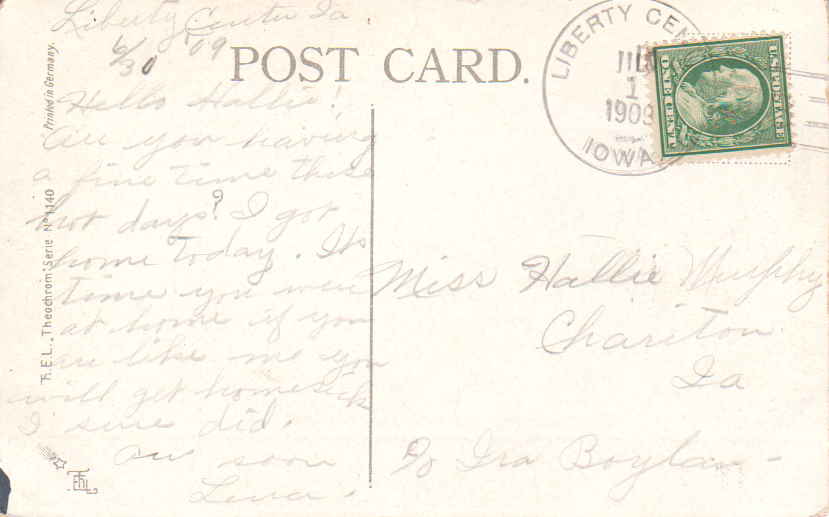 Liberty Center Ia
6/30 '09
POST CARD.
Hello Hallie!
Are you having
a fine time these
hot days? I got
home today. Its
time you were
at home if you
are like me you
will get homesick
I sure did.
soon
Lena.
Miss Hallie Murphy
Chariton
Ia
% Ira Boylan -
LIBERTY CEN
1
1909
IOWA
U.S. POSTAGE
ONE CENT
Printed in Germany.
T.E.L. „Theochrom" Serie No 1140